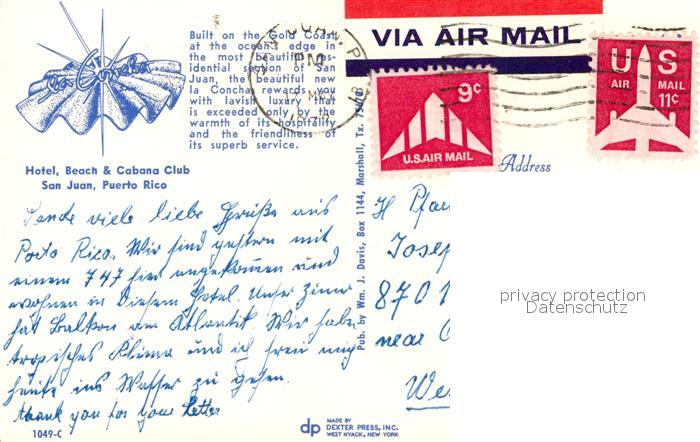 La Concha
Built on the Gold Coast
at the ocean's edge in
the most beautiful res-
idential section of San
Juan, the beautiful new
la Concha rewards you
with lavish luxury that
is exceeded only by the
warmth of its hospitality
and the friendliness of
its superb service.
Hotel, Beach & Cabana Club
San Juan, Puerto Rico
Sende viele liebe Grüße aus
Porto Rico. Wir sind gestern mit
einem 747 hier angekommen und
wohnen in diesem Hotel. Unser Zimmer
hat Balkon am Atlantik. Wir habe
tropisches Klima und ich freu mich
heute ins Wasser zu gehen.
thank you for your Letter
1049-C
Pub. by Wm. J. Davis, Box 1144, Marshall, Tx.
dp
MADE BY
DEXTER PRESS, INC.
WEST NYACK, NEW YORK
SAN JUAN, P.R.
PM
VIA AIR MAIL
9¢
U.S. AIR MAIL
U S
AIR MAIL
11¢
Address
H Pfar
Josep
8701
near
We
privacy protection
Datenschutz